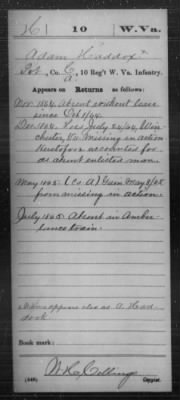 H | 10 | W.Va.
Adam Haddox
Pvt, Co. C/A, 10 Reg't W. Va. Infantry.
Appears on Returns as follows:
Nov 1864 Absent without leave
since Oct 1/64.
Dec 1864. Pris July 24/64, Win
chester, Va. Missing in action
Heretofore accounted for
as absent enlisted man.
May 1865 (Co A) Gain May 8/65
from missing in action.
July 1865 Absent in Ambu
lance train.
appears also as A. Head
dock
Book mark:
(546)
Copyist.